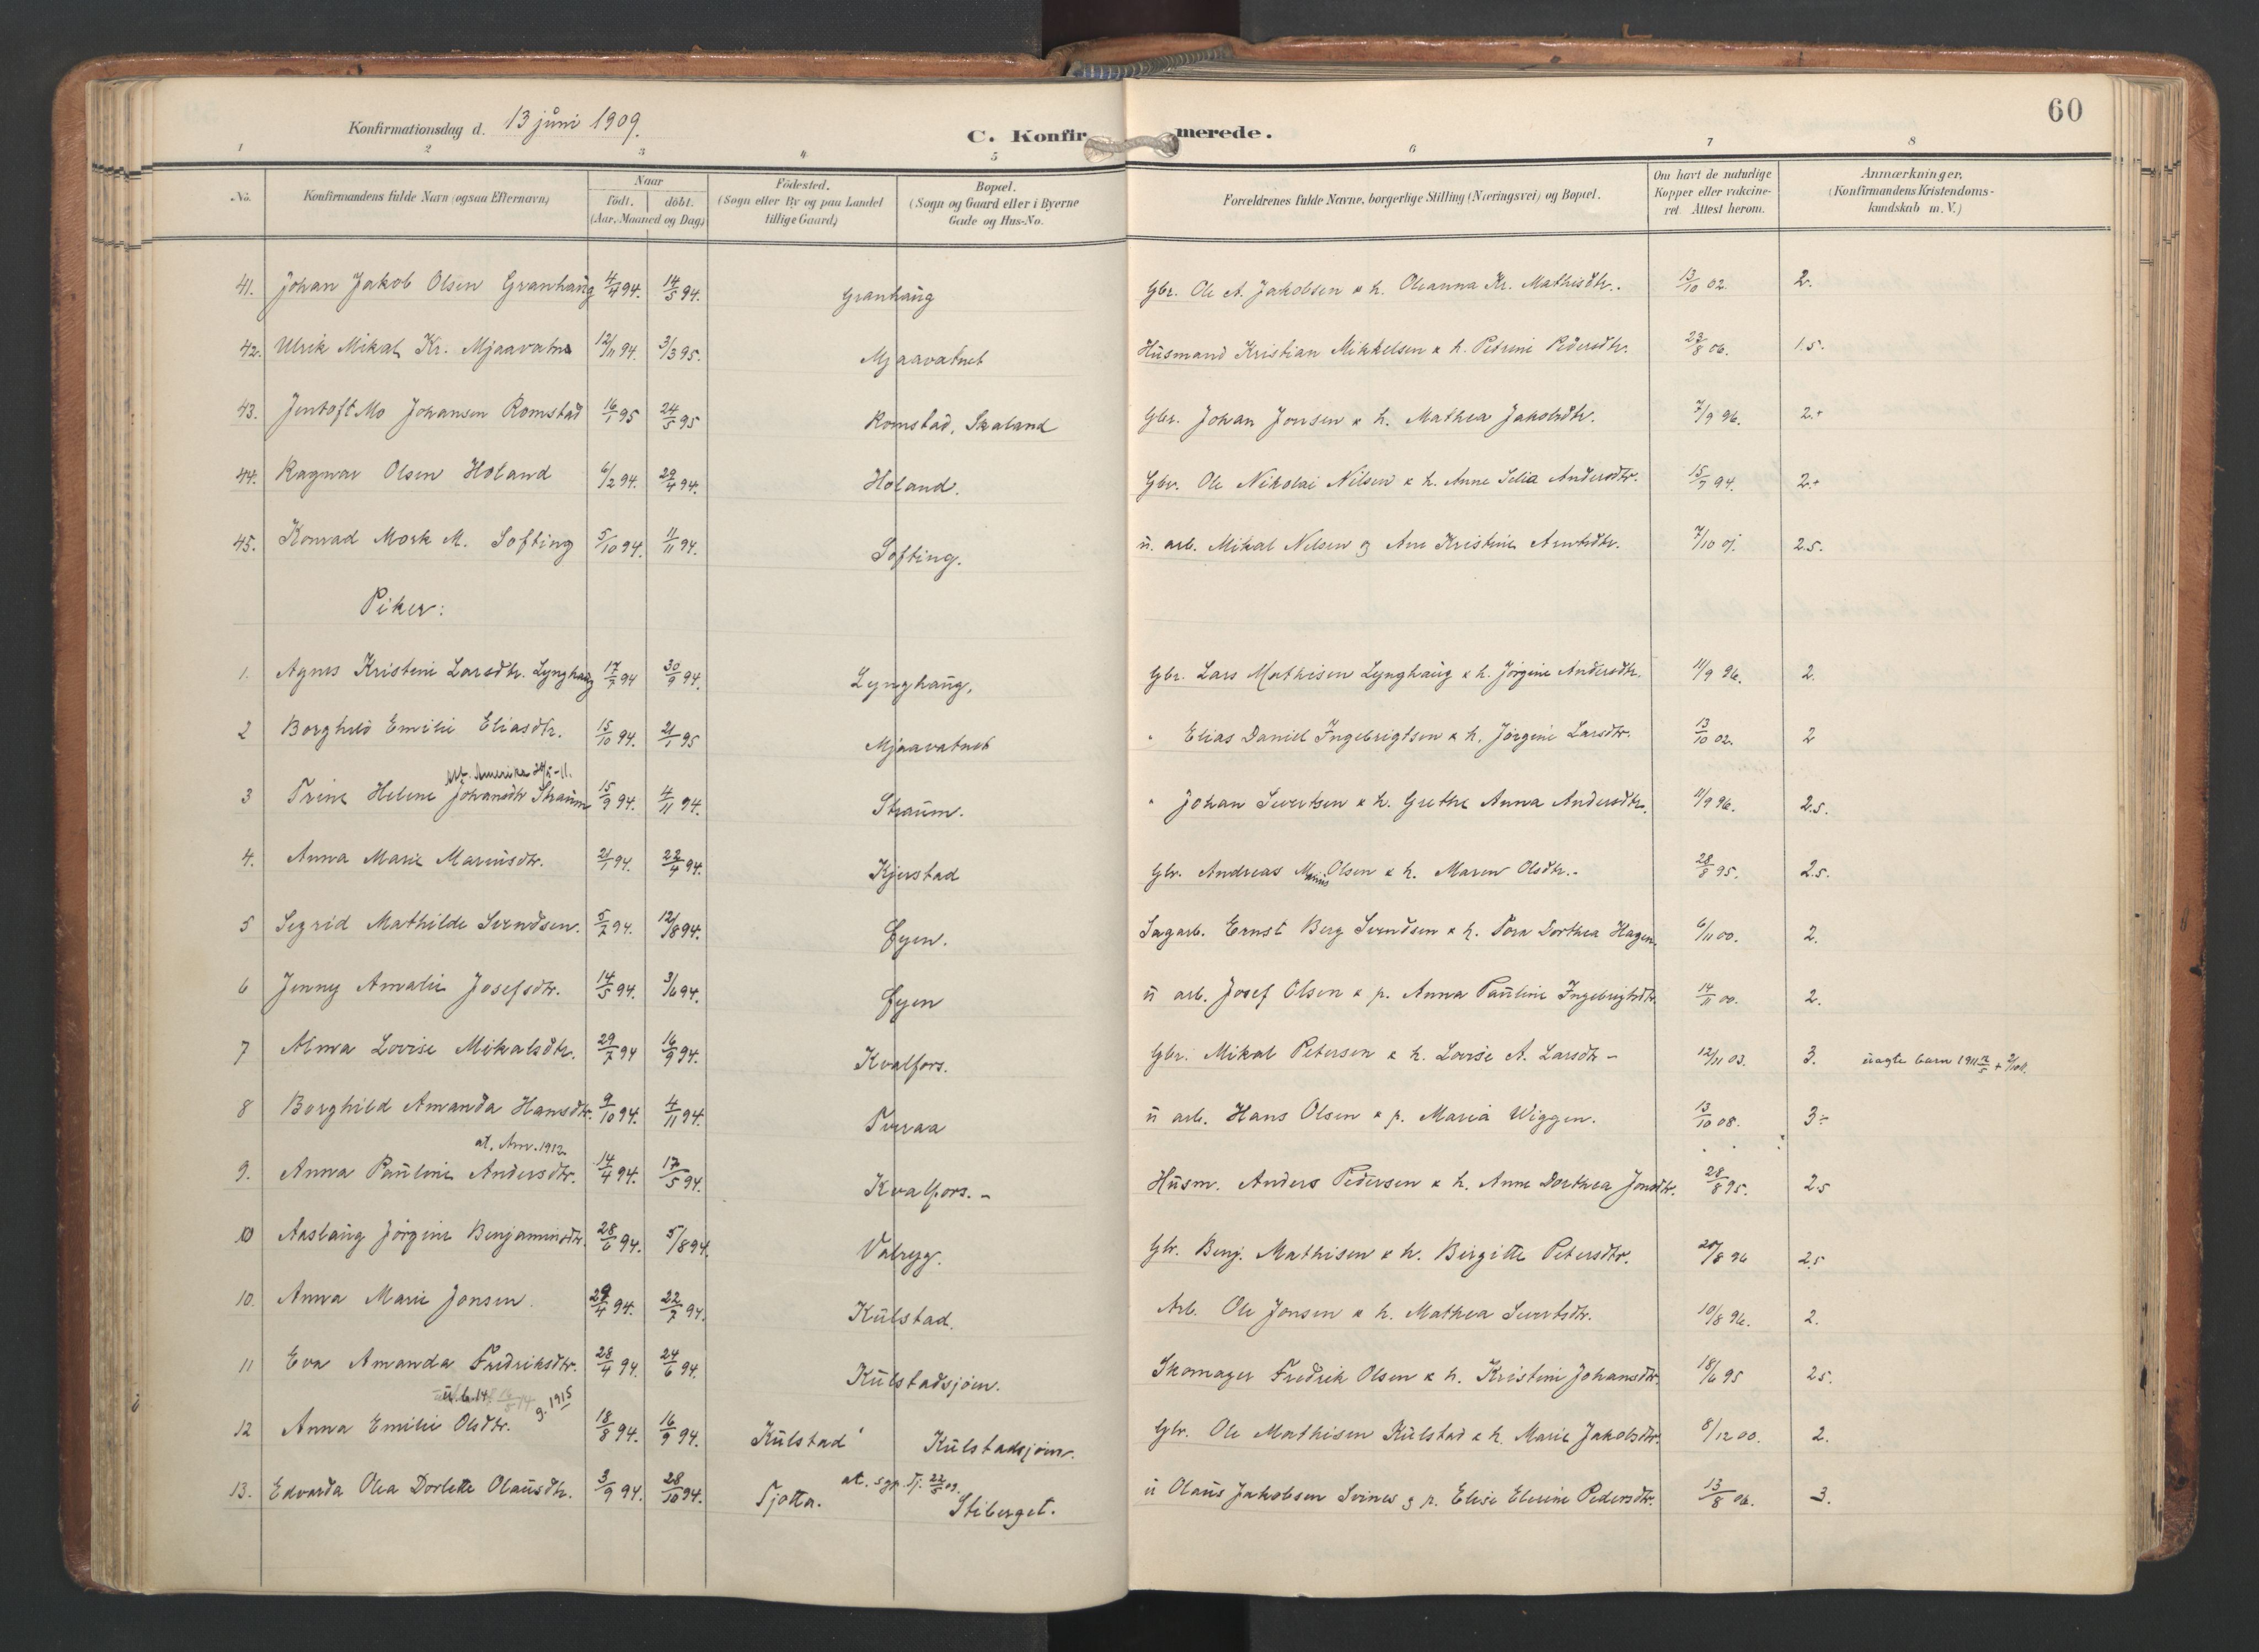 60
Konfirmationsdag d. 13 juni 1909.
C. Konfirmerede.
1 2 3 4 5 6 7 8
No. Konfirmandens fulde Navn (ogsaa Efternavn) Naar født. døbt. (Aar, Maaned og Dag) Fødested. (Sogn eller By og paa Landet tillige Gaard) Bopæl. (Sogn og Gaard eller i Byerne Gade og Hus-No. Forældrenes fulde Navne, borgerlige Stilling (Næringsvei) og Bopæl. Om havt de naturlige Kopper eller vakcineret. Attest herom. Anmærkninger. (Konfirmandens Kristendomskundskab m. V.)
41. Johan Jakob Olsen Granhaug 4/4 94. 14/5 94. Granhaug Gbr. Ole A. Jakobsen & h. Oleanna Kr. Mathisdtr. 13/10 02. 2.
42. Ulrik Mikal Kr. Mjaavatn 12/11 94. 3/3 95. Mjaavatnet Husmand Kristian Mikkelsen & h. Petrine Pedersdtr. 22/8 06. 1.5.
43. Jentoft Mo Johansen Romstad 16/1 95 24/5 95 Romstad, Skaland Gbr. Johan Jonsen & h. Mathea Jakobsdtr. 7/9 96. 2.+
44. Ragnar Olsen Holand 6/2 94. 29/4 94. Holand. Gbr. Ole Nikolai Nilsen & h. Anne Selia Andersdtr. 15/9 94. 2.+
45. Konrad Mork M. Softing 5/10 94. 11/11 94. Softing. u. arb. Mikal Nilsen og Ane Kristine Arntsdtr. 7/10 07. 2.5.
Piker:
1. Agnes Kristine Larsdtr. Lynghaug 17/7 94 30/9 94. Lynghaug, Gbr. Lars Mathisen Lynghaug & h. Jørgine Andersdtr. 11/9 96. 2.
2 Borghild Emilie Eliasdtr. 15/10 94. 21/1 95 Mjaavatnet " Elias Daniel Ingebrigtsen & h. Jørgine Larsdtr. 13/10 02. 2
Amerika
3 Trine Helene Johansdtr Straum 15/9 94. 4/11 94. Straum. " Johan Sivertsen & h. Grethe Anna Andersdtr. 11/9 96. 2.5.
4. Anna Marie Mariusdtr. 21/1 94. 22/4 94. Kjerstad Gbr. Andreas Marius Olsen & h. Maren Olsdtr. 28/8 95. 2.5.
5 Sigrid Mathilde Svendsen. 5/7 94. 12/8 94. Øyen. Sagarb. Ernst Berg Svendsen & h. Tora Dorthea Hagen. 6/11 00. 2.
6 Jenny Amalie Josefsdtr. 14/5 94. 3/6 94. Øyen u arb. Josef Olsen & p. Anna Pauline Ingebrigtsdtr. 14/11 00. 2.
7 Alma Lovise Mikalsdtr. 29/7 94 16/9 94. Kvalfors. Gbr. Mikal Petersen & h. Lovise A. Larsdtr - 12/11 03. 3. uægte barn
8 Borghild Amanda Hansdtr. 9/10 94. 4/11 94. Tveraa u arb. Hans Olsen & p. Maria Wiggen. 13/10 08. 3÷
at. Am. 1912
9. Anna Pauline Andersdtr. 14/4 94. 17/5 94. Kvalfors. - Husm. Anders Pedersen & h. Anne Dorthea Jonsdtr. 28/8 95. 2.5
10 Aaslaug Jørgine Benjaminsdtr. 28/6 94. 5/8 94. Valryg. Gbr. Benj. Mathisen & h. Birgitte Petersdtr. 20/8 96 2.5
10. Anna Marie Jonsen. 29/4 94. 22/7 94. Kulstad. Arb. Ole Jonsen & h. Mathea Sivertsdtr. 10/8 96. 2.
11 Eva Amanda Fredriksdtr. 28/4 94. 24/6 94. Kulstadsjøen. Skomager Fredrik Olsen & h. Kristine Johansdtr. 18/6 95 2.5.
u. b. 14 g. 1915
12 Anna Emilie Olsdtr. 18/8 94. 16/9 94. Kulstad Kulstadsjøen. Gbr. Ole Mathisen Kulstad & h. Marie Jakobsdtr. 8/12 00. 2.
at. sgn. Tj. 22/5 09.
13. Edvarda Olea Dorlette Olausdtr. 3/9 94. 28/10 94. Tjøtta. Stiberget. u Olaus Jakobsen Svines og p. Elise Eline Pedersdtr. 13/8 06. 3.